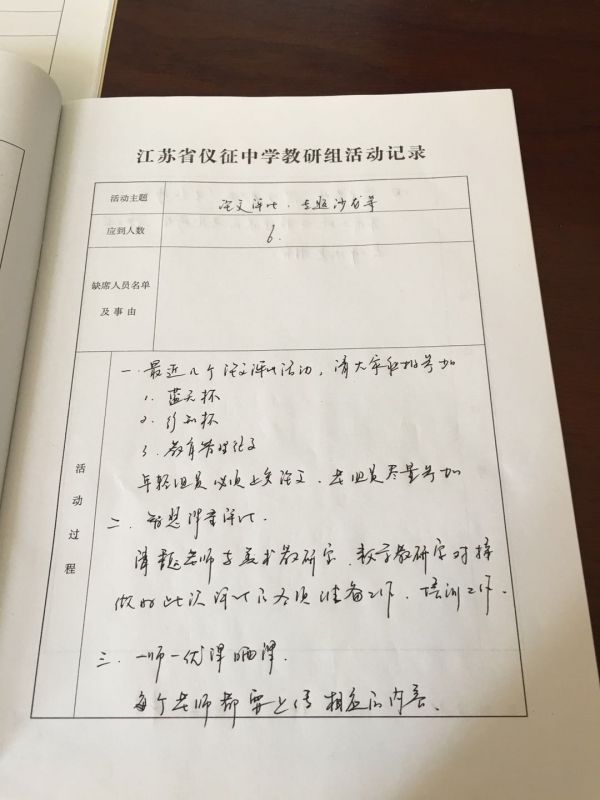 江苏省仪征中学教研组活动记录
活动主题
论文评比、专题沙龙等
应到人数
6.
缺席人员名单
及事由
活动过程
一. 最近几个论文评比活动, 请大家积极参加
1. 蓝天杯
2. 行知杯
3. 教育管理论文
年轻组员必须上交论文, 老组员尽量参加
二. 智慧课堂评比.
请赵老师与美术教研室、数学教研室对接
做好此次评比的各项准备工作、培训工作.
三. 一师一优课晒课.
每个老师都要上传相应的内容.